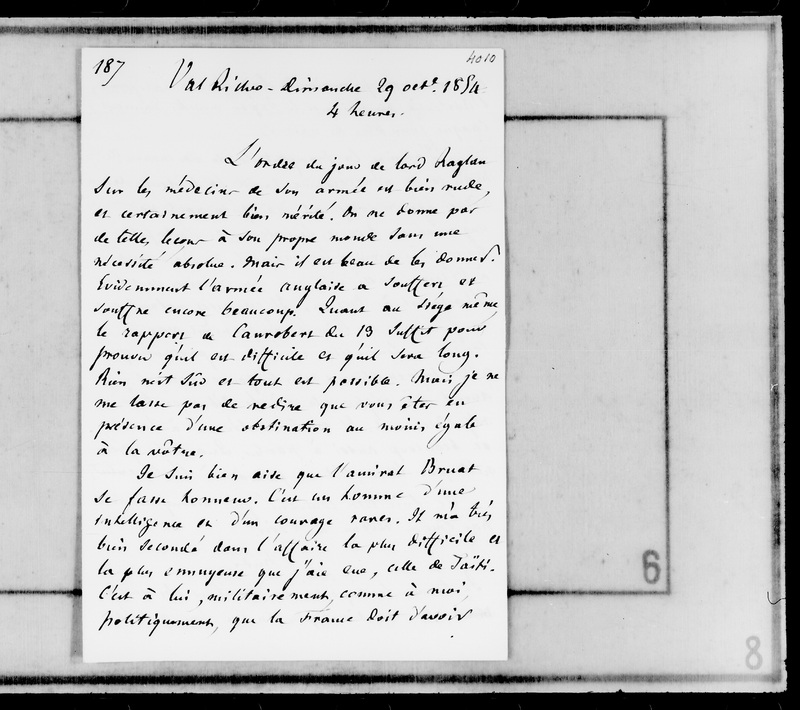 187
4010
Val Richer - Dimanche 29 octe. 1854
4 heures.
L'ordre du jour de lord Raglan
sur les médecins de son armée est bien rude,
et certainement bien mérité. On ne donne pas
de telles leçons à son propre monde sans une
nécessité absolue. Mais il est beau de les donner.
Evidemment l'armée anglaise a souffert et
souffre encore beaucoup. Quant au siège même,
le rapport de Canrobert du 13 suffit pour
prouver qu'il est difficile et qu'il sera long.
Rien n'est sûr et tout est possible. Mais je ne
me lasse pas de redire que vous êtes en
présence d'une obstination au moins égale
à la vôtre.
Je suis bien aise que l'amiral Bruat
se fasse honneur. C'est un homme d'une
intelligence et d'un courage rares. Il m'a très
bien secondé dans l'affaire la plus difficile et
la plus ennuyeuse que j'aie eue, celle de Taïti.
C'est à lui, militairement, comme à moi,
politiquement, que la France doit d'avoir
6
8